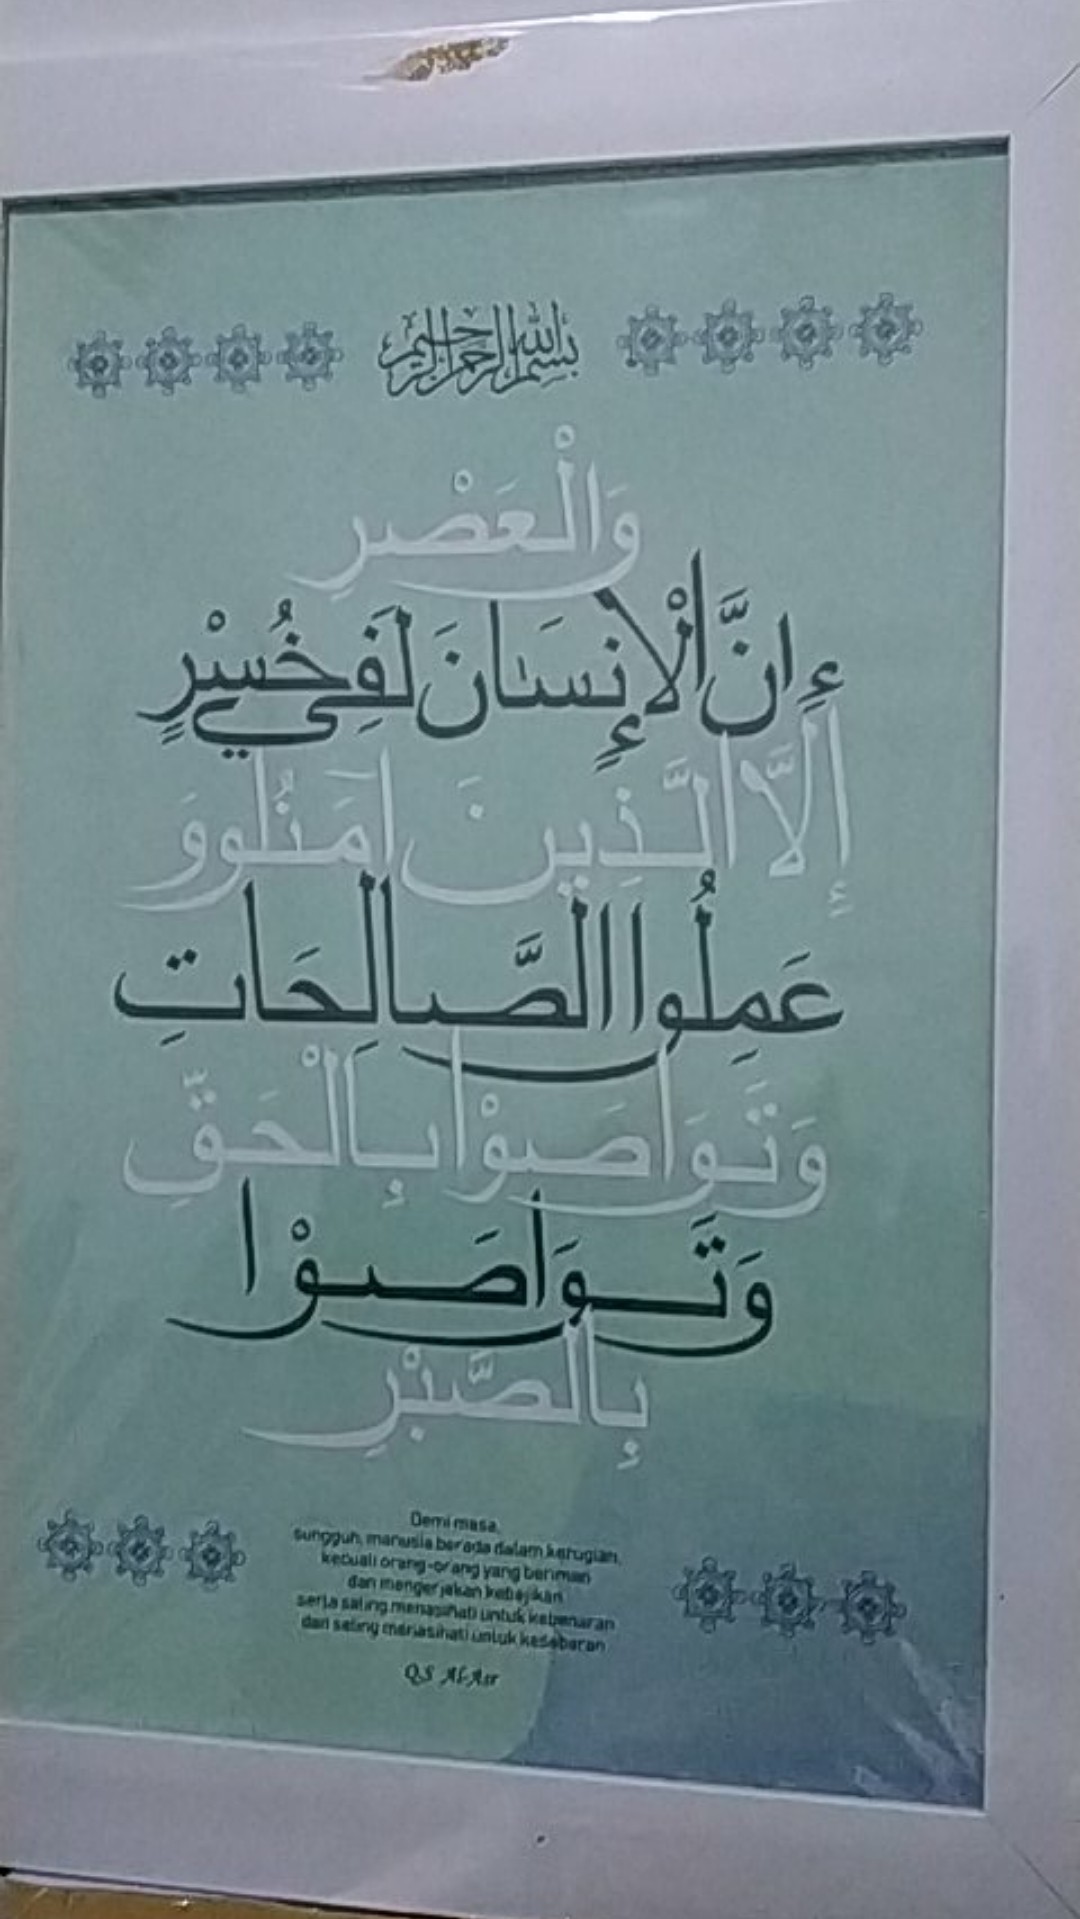 بسم الله الرحمن الرحيم
وَالْعَصْرِ
إِنَّ الْإِنسَانَ لَفِي خُسْرٍ
إِلَّا الَّذِينَ آمَنُوا وَ
عَمِلُوا الصَّالِحَاتِ
وَتَوَاصَوْا بِالْحَقِّ
وَتَوَاصَوْا
بِالصَّبْرِ
Demi masa,
sungguh, manusia berada dalam kerugian,
kecuali orang-orang yang beriman
dan mengerjakan kebajikan
serta saling menasihati untuk kebenaran
dan saling menasihati untuk kesabaran
QS Al-Asr